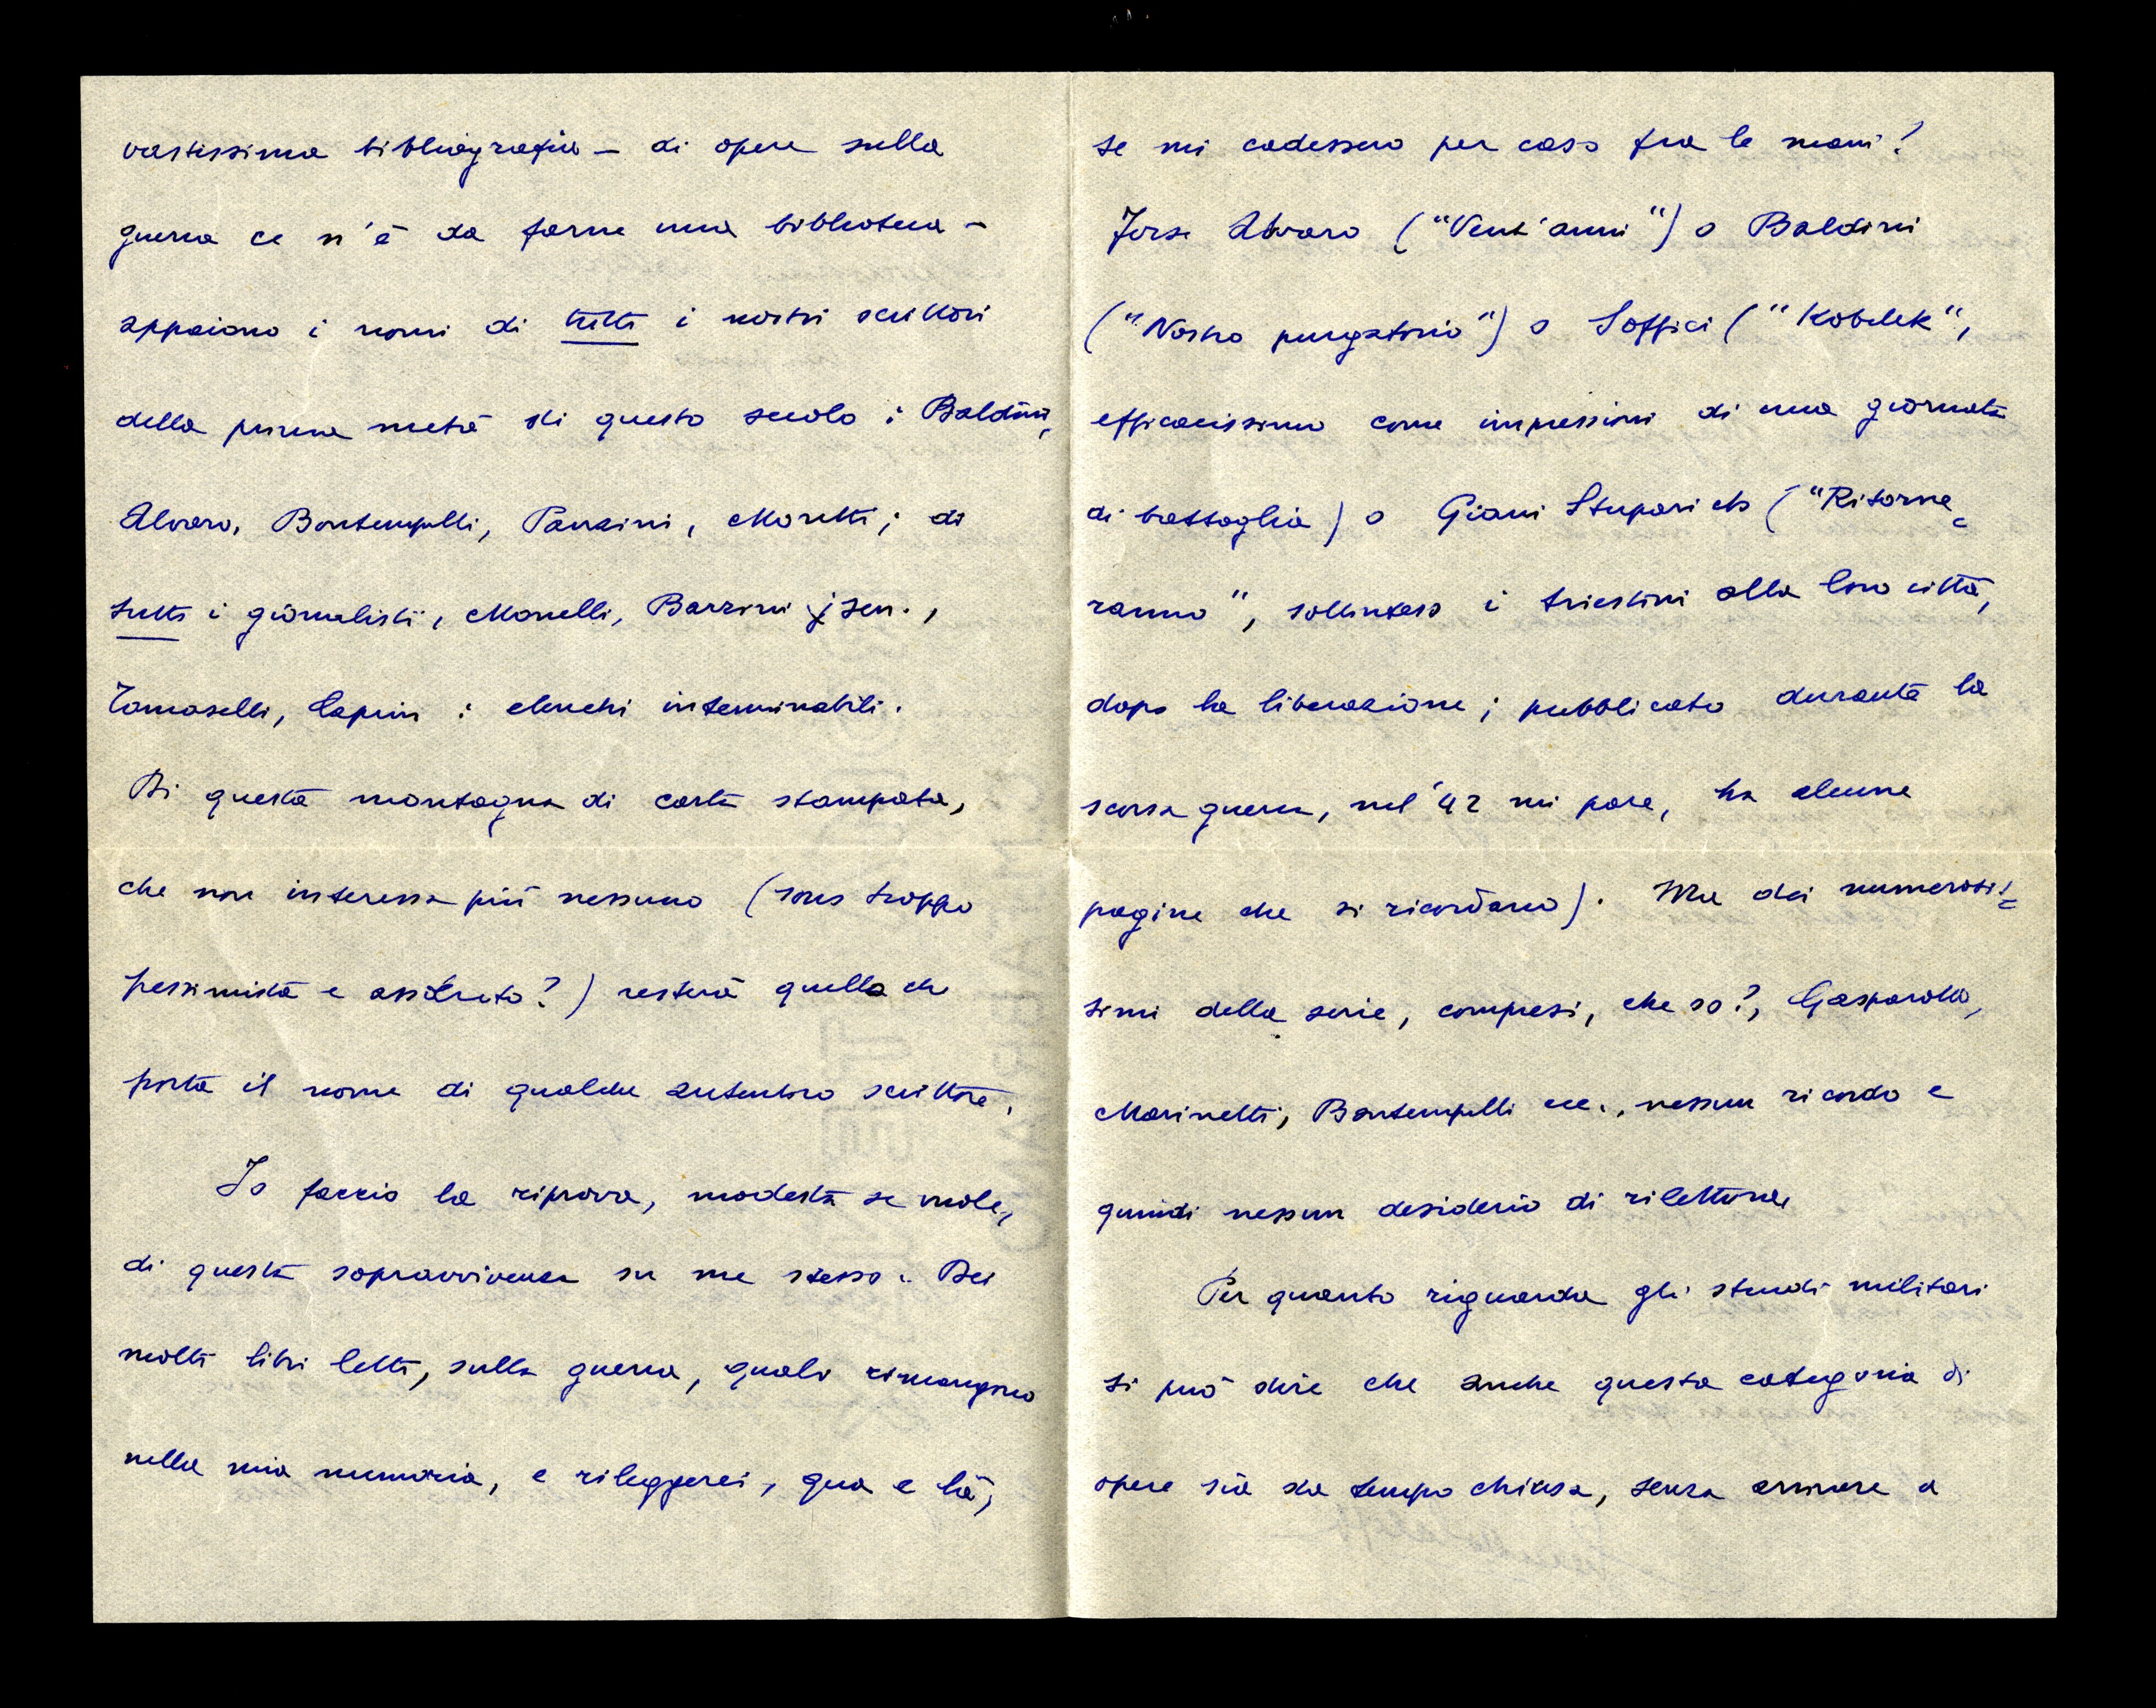 vastissima bibliografia - di opere sulla
guerra ce n'è da farne una biblioteca -
appaiono i nomi di tutti i nostri scrittori
della prima metà di questo secolo: Baldini,
Alvaro, Bontempelli, Panzini, Moretti; di
tutti i giornalisti, Monelli, Barzini sen.,
Tomaselli, Caprin: elenchi interminabili.
Di questa montagna di carta stampata,
che non interessa più nessuno (sono troppo
pessimista e assoluto?) resterà quella che
porta il nome di qualche autentico scrittore.
Io faccio la riprova, modesta se vuole,
di questa sopravvivenza su me stesso. Dei
molti libri letti, sulla guerra, quali rimangono
nella mia memoria, e rileggerei, qua e là,
se mi cadessero per caso fra le mani?
Forse Alvaro ("Vent'anni") o Baldini
("Nostro purgatorio") o Soffici ("Kobilek",
efficacissimo come impressioni di una giornata
di battaglia) o Giani Stuparich ("Ritorne=
ranno", sottinteso i triestini alla loro città,
dopo la liberazione; pubblicato durante la
scorsa guerra, nel '42 mi pare, ha alcune
pagine che si ricordano). Ma dei numerosis=
simi della serie, compresi, che so?, Gasparotto,
Marinetti, Bontempelli ecc., nessun ricordo e
quindi nessun desiderio di rilettura.
Per quanto riguarda gli studi militari
si può dire che anche questa categoria di
opere sia da tempo chiusa, senza arrivare a